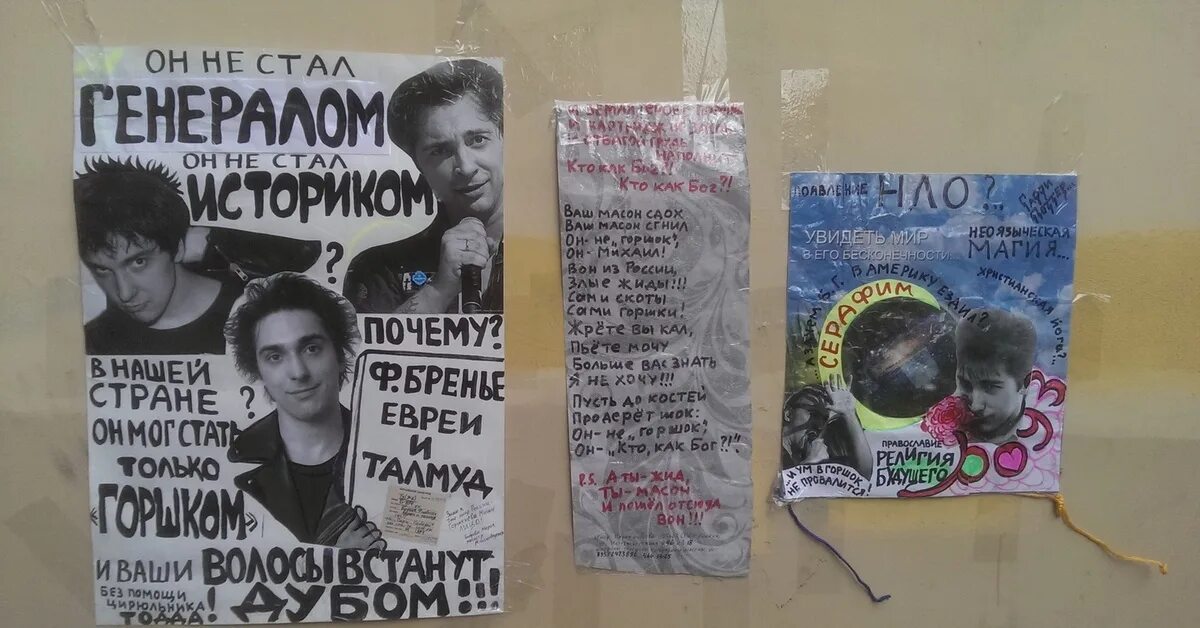 ОН НЕ СТАЛ
ГЕНЕРАЛОМ
ОН НЕ СТАЛ
ИСТОРИКОМ
?
ПОЧЕМУ?
В НАШЕЙ
СТРАНЕ ?
ОН МОГ СТАТЬ
ТОЛЬКО
«ГОРШКОМ»
Ф. БРЕНЬЕ
ЕВРЕИ
И
ТАЛМУД
И ВАШИ ВОЛОСЫ ВСТАНУТ
ДУБОМ!!!
БЕЗ ПОМОЩИ
ЦИРЮЛЬНИКА
ТОДДА!
И ОТВАГОЙ ГРУДЬ
НАПОЛНИТ
КТО КАК БОГ?!
КТО КАК БОГ?!
ВАШ МАСОН СДОХ
ВАШ МАСОН СГНИЛ
ОН- НЕ „ГОРШОК",
ОН- МИХАИЛ!
ВОН ИЗ РОССИИ,
ЗЛЫЕ ЖИДЫ!!!
САМИ СКОТЫ
САМИ ГОРШКИ!
ЖРЁТЕ ВЫ КАЛ,
ПЬЁТЕ МОЧУ
БОЛЬШЕ ВАС ЗНАТЬ
Я НЕ ХОЧУ!!!
ПУСТЬ ДО КОСТЕЙ
ПРОДЕРЁТ ШОК:
ОН- НЕ „ГОРШОК",
ОН- „КТО, КАК БОГ?!"
P.S. А ТЫ- ЖИД,
ТЫ- МАСОН
И ПОШЕЛ ОТСЮДА
ВОН!!!
ПОЯВЛЕНИЕ НЛО?..
НЕОЯЗЫЧЕСКАЯ
МАГИЯ...
УВИДЕТЬ МИР
В ЕГО БЕСКОНЕЧНОСТИ...
ХРИСТИАНСКАЯ ЙОГА?..
В АМЕРИКУ ЕЗДИЛ?
СЕРАФИМ
ПРАВОСЛАВИЕ
РЕЛИГИЯ
БУДУЩЕГО
...И УМ В ГОРШОК
НЕ ПРОВАЛИТСЯ!